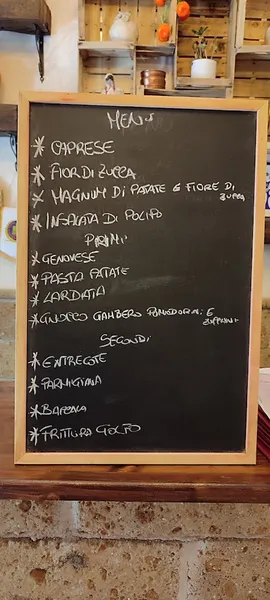 MENÙ
* CAPRESE
* FIOR DI ZUCCA
* MAGNUM DI PATATE E FIORE DI
ZUCCA
* INSALATA DI POLIPO
PRIMI
* GENOVESE
* PASTA PATATE
* LARDIATA
* GNOCCO GAMBERO POMODORINI E
ZUCCHINE
SECONDI
* ENTRECOTE
* PARMIGIANA
*
* FRITTURA